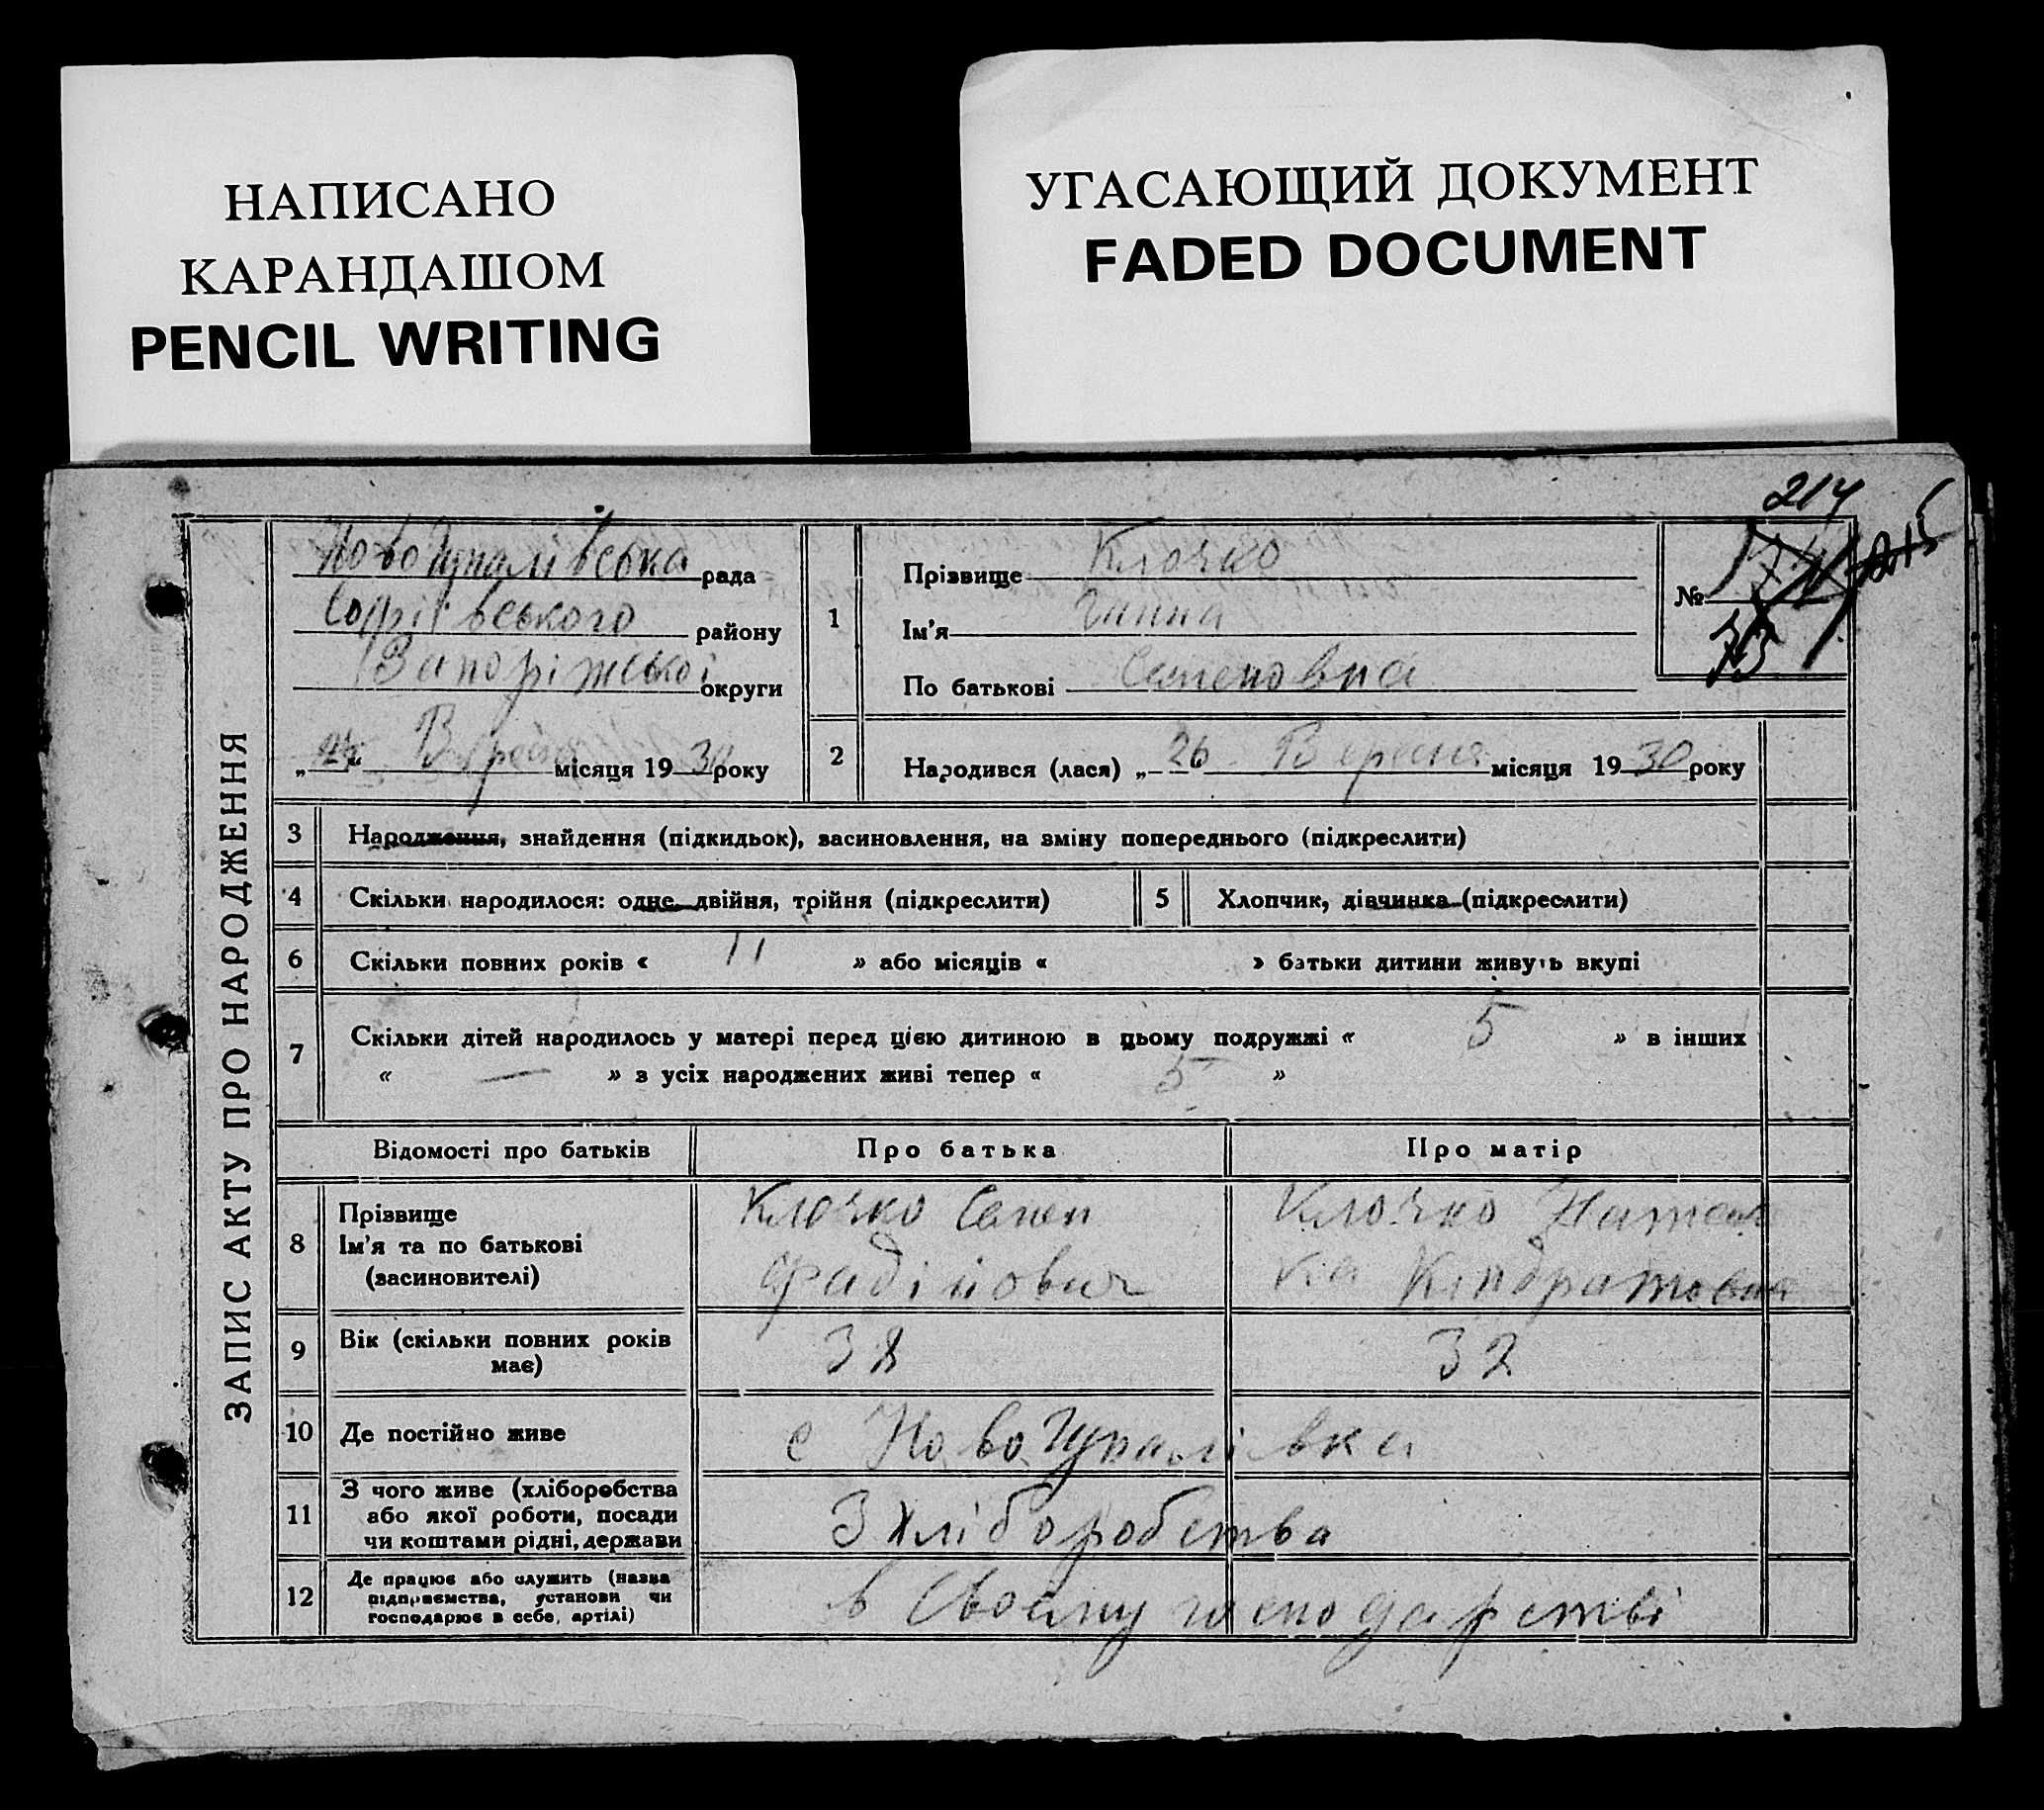 НАПИСАНО
КАРАНДАШОМ
PENCIL WRITING
УГАСАЮЩИЙ ДОКУМЕНТ
FADED DOCUMENT
214
215
ЗАПИС АКТУ ПРО НАРОДЖЕННЯ
НовоГупалівська рада
району
Запоріжської округи
„ “ Вересня місяця 1930 року
1 Прізвище Клочко
Ім'я Ганна
По батькові Семеновна
№ 73
2 Народився (лася) „ 26 Вересня місяця 1930 року
3 Народження, знайдення (підкидьок), засиновлення, на зміну попереднього (підкреслити)
4 Скільки народилося: одне, двійня, трійня (підкреслити) 5 Хлопчик, дівчинка (підкреслити)
6 Скільки повних років « 11 » або місяців « » батьки дитини живуть вкупі
7 Скільки дітей народилось у матері перед цією дитиною в цьому подружжі « 5 » в інших
« — » з усіх народжених живі тепер « 5 »
Відомості про батьків Про батька Про матір
8 Прізвище Клочко Семен Клочко Натал
Ім'я та по батькові
(засиновителі) ка Кіндратовна
9 Вік (скільки повних років має) 38 32
10 Де постійно живе с НовоГупалівка
11 З чого живе (хліборобства
або якої роботи, посади З хліборобства
чи коштами рідні, держави
12 Де працює або служить (назва
підприємства, установи чи в Своему господарстві
господарює в себе, артілі)